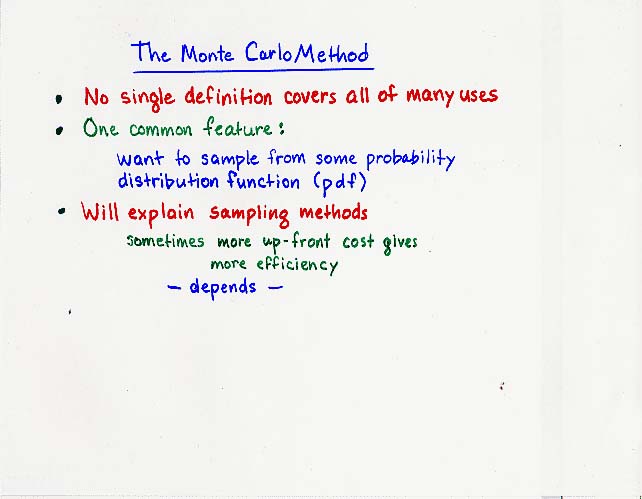 The Monte Carlo Method
• No single definition covers all of many uses
• One common feature:
want to sample from some probability
distribution function (pdf)
• Will explain sampling methods
sometimes more up-front cost gives
more efficiency
– depends –